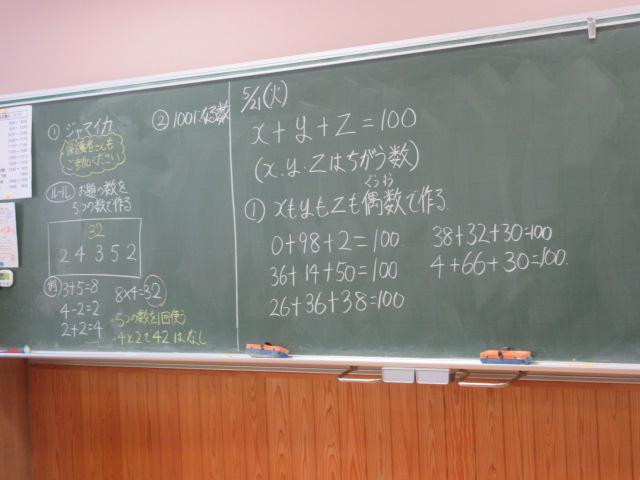 ① ジャマイカ
保護者さんも
ご参加ください
ルール お題の数を
5つの数で作る
32
2 4 3 5 2
例 3+5=8
4-2=2
2+2=4
8×4=32
・5つの数を1回使う
・4と2で42はなし
② 100になる数
5/21(火)
x+y+z=100
(x.y.zはちがう数)
① xもyもzも偶数で作る
ぐうすう
0+98+2=100
36+14+50=100
26+36+38=100
38+32+30=100
4+66+30=100.